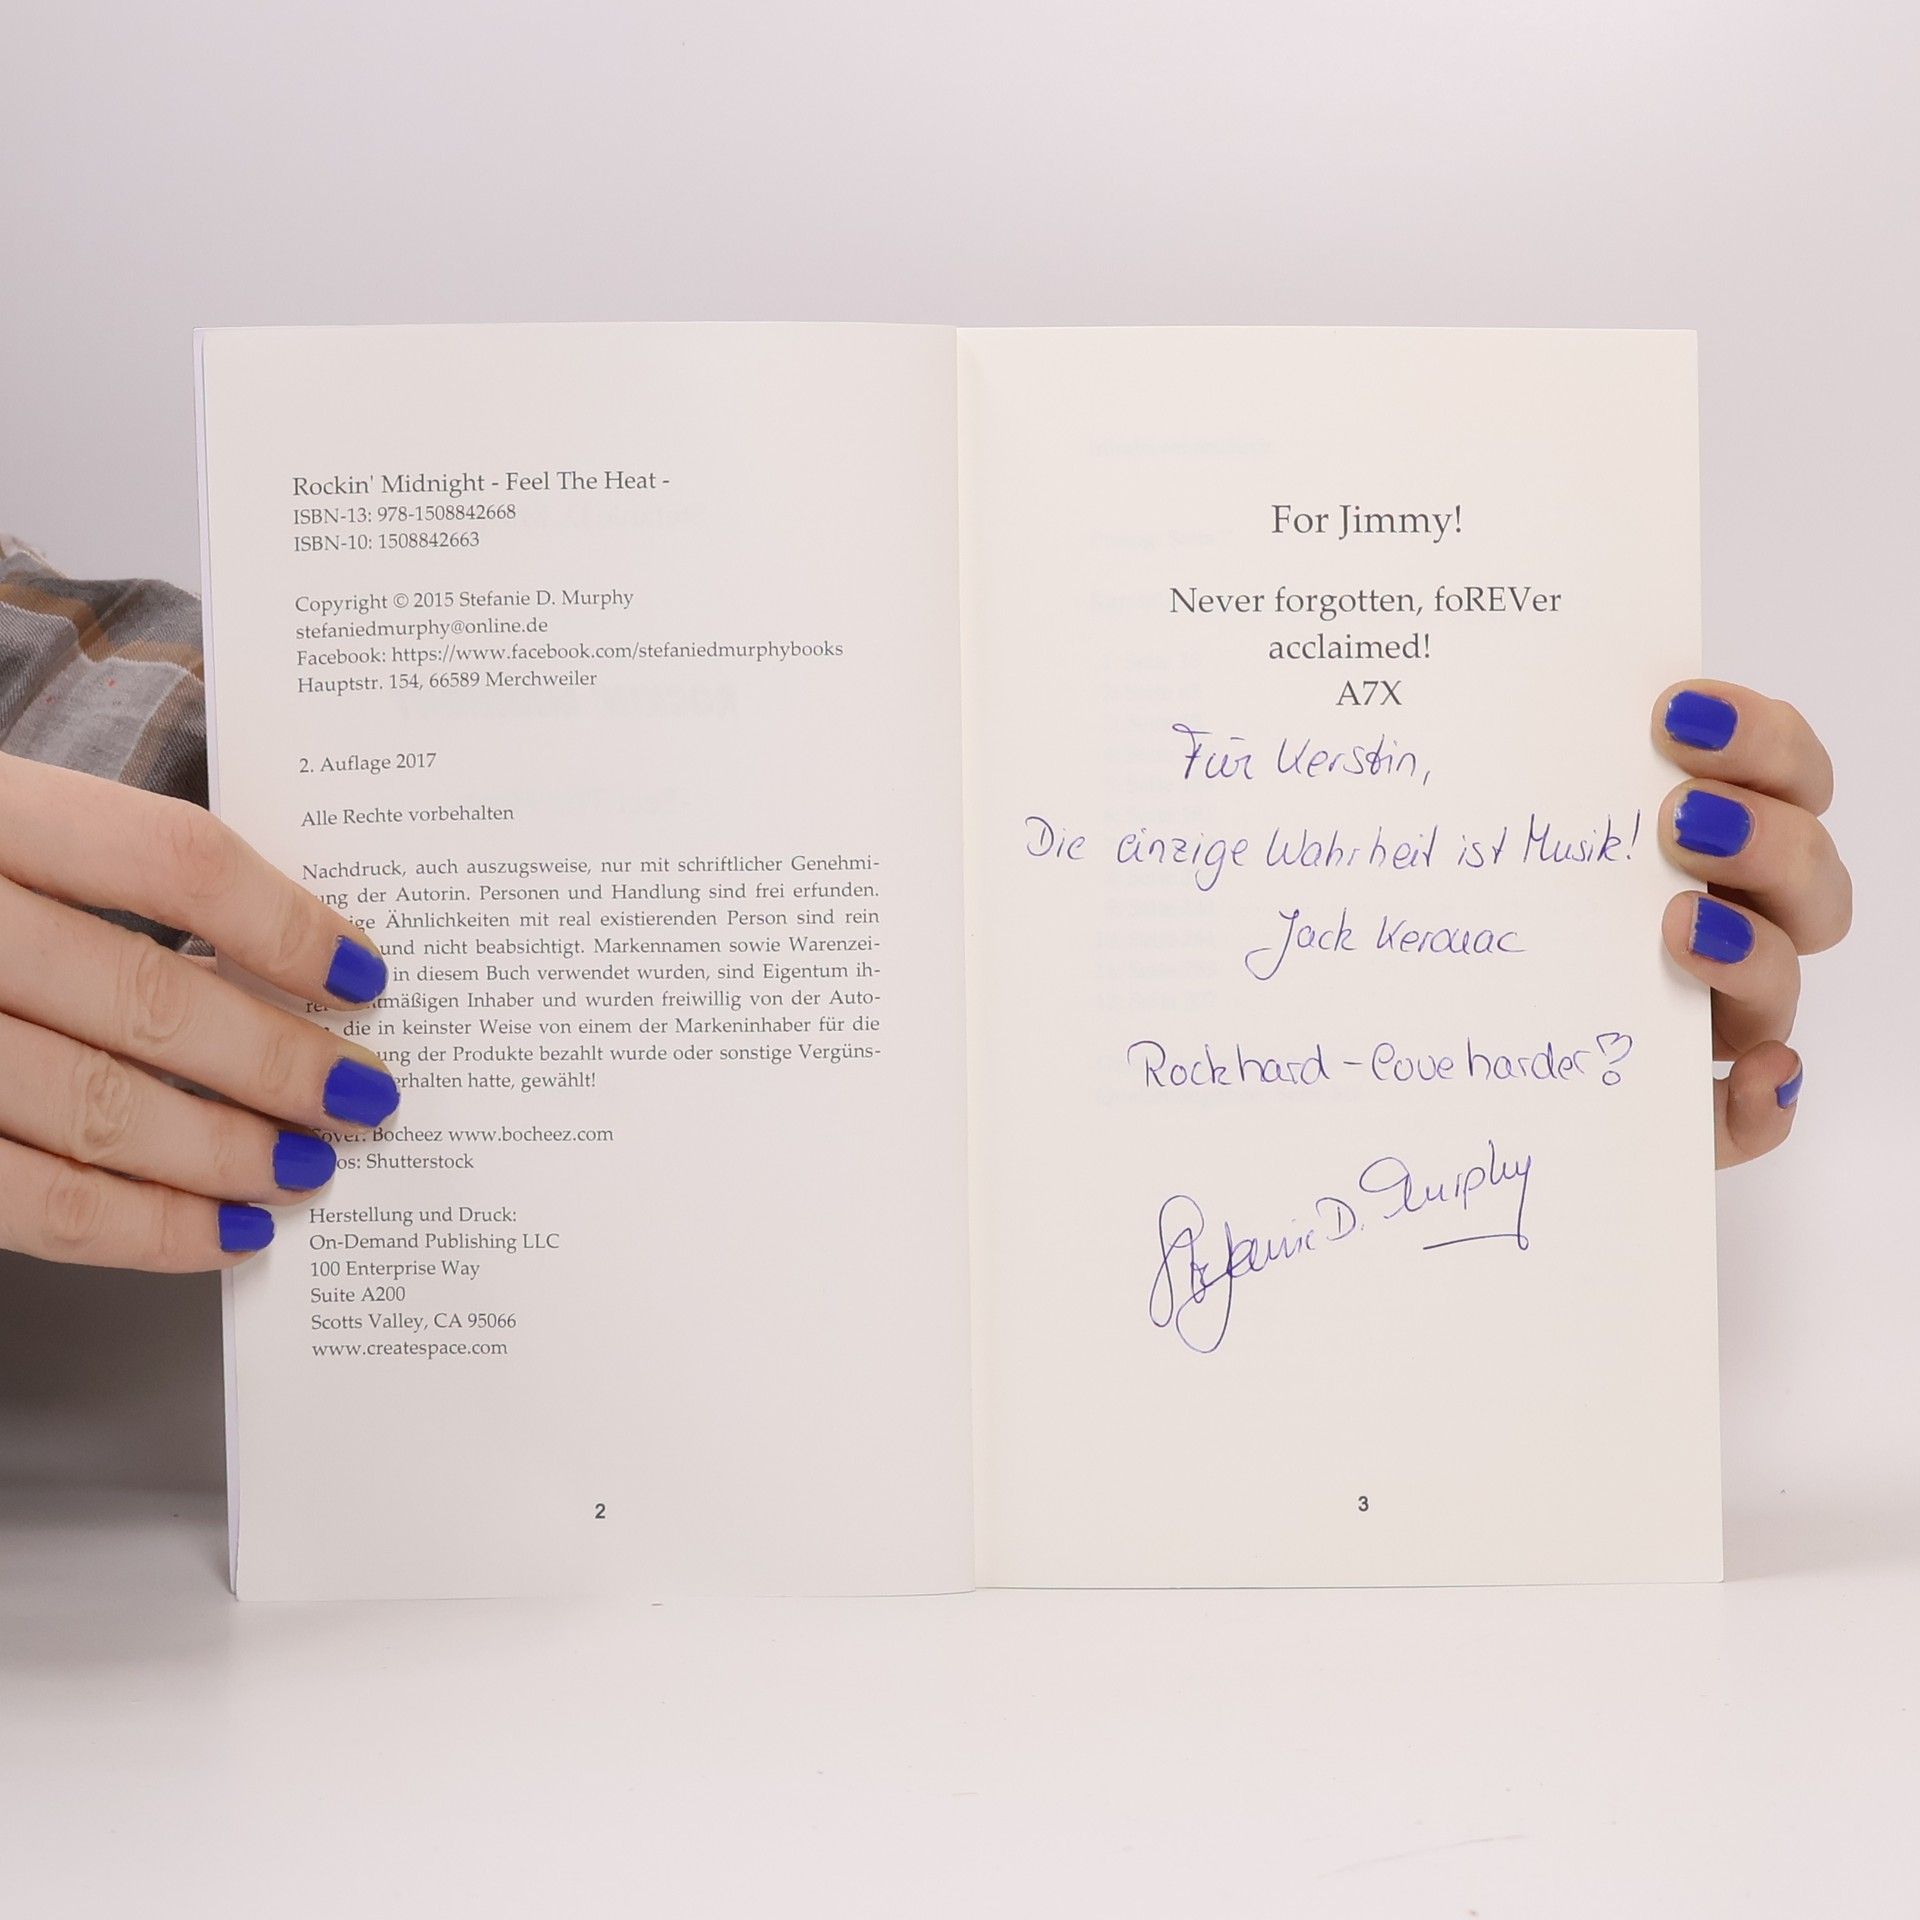 Rockin' Midnight - Feel The Heat -
ISBN-13: 978-1508842668
ISBN-10: 1508842663
Copyright © 2015 Stefanie D. Murphy
stefaniedmurphy@online.de
Facebook: https://www.facebook.com/stefaniedmurphybooks
Hauptstr. 154, 66589 Merchweiler
2. Auflage 2017
Alle Rechte vorbehalten
Nachdruck, auch auszugsweise, nur mit schriftlicher Genehmi-
ung der Autorin. Personen und Handlung sind frei erfunden.
ige Ähnlichkeiten mit real existierenden Person sind rein
und nicht beabsichtigt. Markennamen sowie Warenzei-
in diesem Buch verwendet wurden, sind Eigentum ih-
tmäßigen Inhaber und wurden freiwillig von der Auto-
die in keinster Weise von einem der Markeninhaber für die
ung der Produkte bezahlt wurde oder sonstige Vergüns-
erhalten hatte, gewählt!
Cover: Bocheez www.bocheez.com
os: Shutterstock
Herstellung und Druck:
On-Demand Publishing LLC
100 Enterprise Way
Suite A200
Scotts Valley, CA 95066
www.createspace.com
2
For Jimmy!
Never forgotten, foREVer
acclaimed!
A7X
Für Kerstin,
Die einzige Wahrheit ist Musik!
Jack Kerouac
Rock hard - love harder!
Stefanie D. Murphy
3